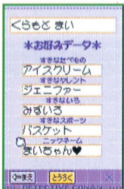 くらもと まい
*お好みデータ*
すきなたべもの
アイスクリーム
すきなタレント
ジェニファー
すきないろ
みずいろ
すきなスポーツ
バスケット
ニックネーム
まいちゃん♥
まえ とうろく